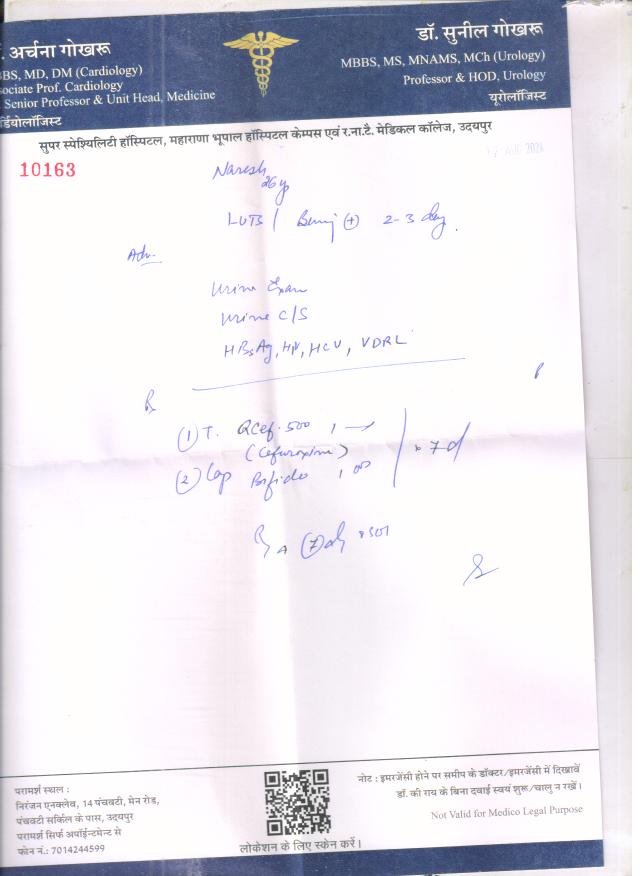 . अर्चना गोखरू
BBS, MD, DM (Cardiology)
ociate Prof. Cardiology
. Senior Professor & Unit Head, Medicine
र्डियोलॉजिस्ट
डॉ. सुनील गोखरू
MBBS, MS, MNAMS, MCh (Urology)
Professor & HOD, Urology
यूरोलॉजिस्ट
सुपर स्पेशियलिटी हॉस्पिटल, महाराणा भूपाल हॉस्पिटल केम्पस एवं र.ना.टै. मेडिकल कॉलेज, उदयपुर
10163
Naresh
26y
LUTS / (+) 2-3 day
Adv.
Urine Exam
Urine C/S
HBsAg, HIV, HCV, VDRL
(1) T. Qcef 500 1
(Cefuroxime)
(2) Cap Bifido 1 OD
7 d
(7)
परामर्श स्थल :
निरंजन एनक्लेव, 14 पंचवटी, मेन रोड,
पंचवटी सर्किल के पास, उदयपुर
परामर्श सिर्फ अपॉईन्टमेन्ट से
फोन नं.: 7014244599
लोकेशन के लिए स्केन करें।
नोट : इमरजेंसी होने पर समीप के डॉक्टर/इमरजेंसी में दिखावें
डॉ. की राय के बिना दवाई स्वयं शुरू/चालु न रखें।
Not Valid for Medico Legal Purpose